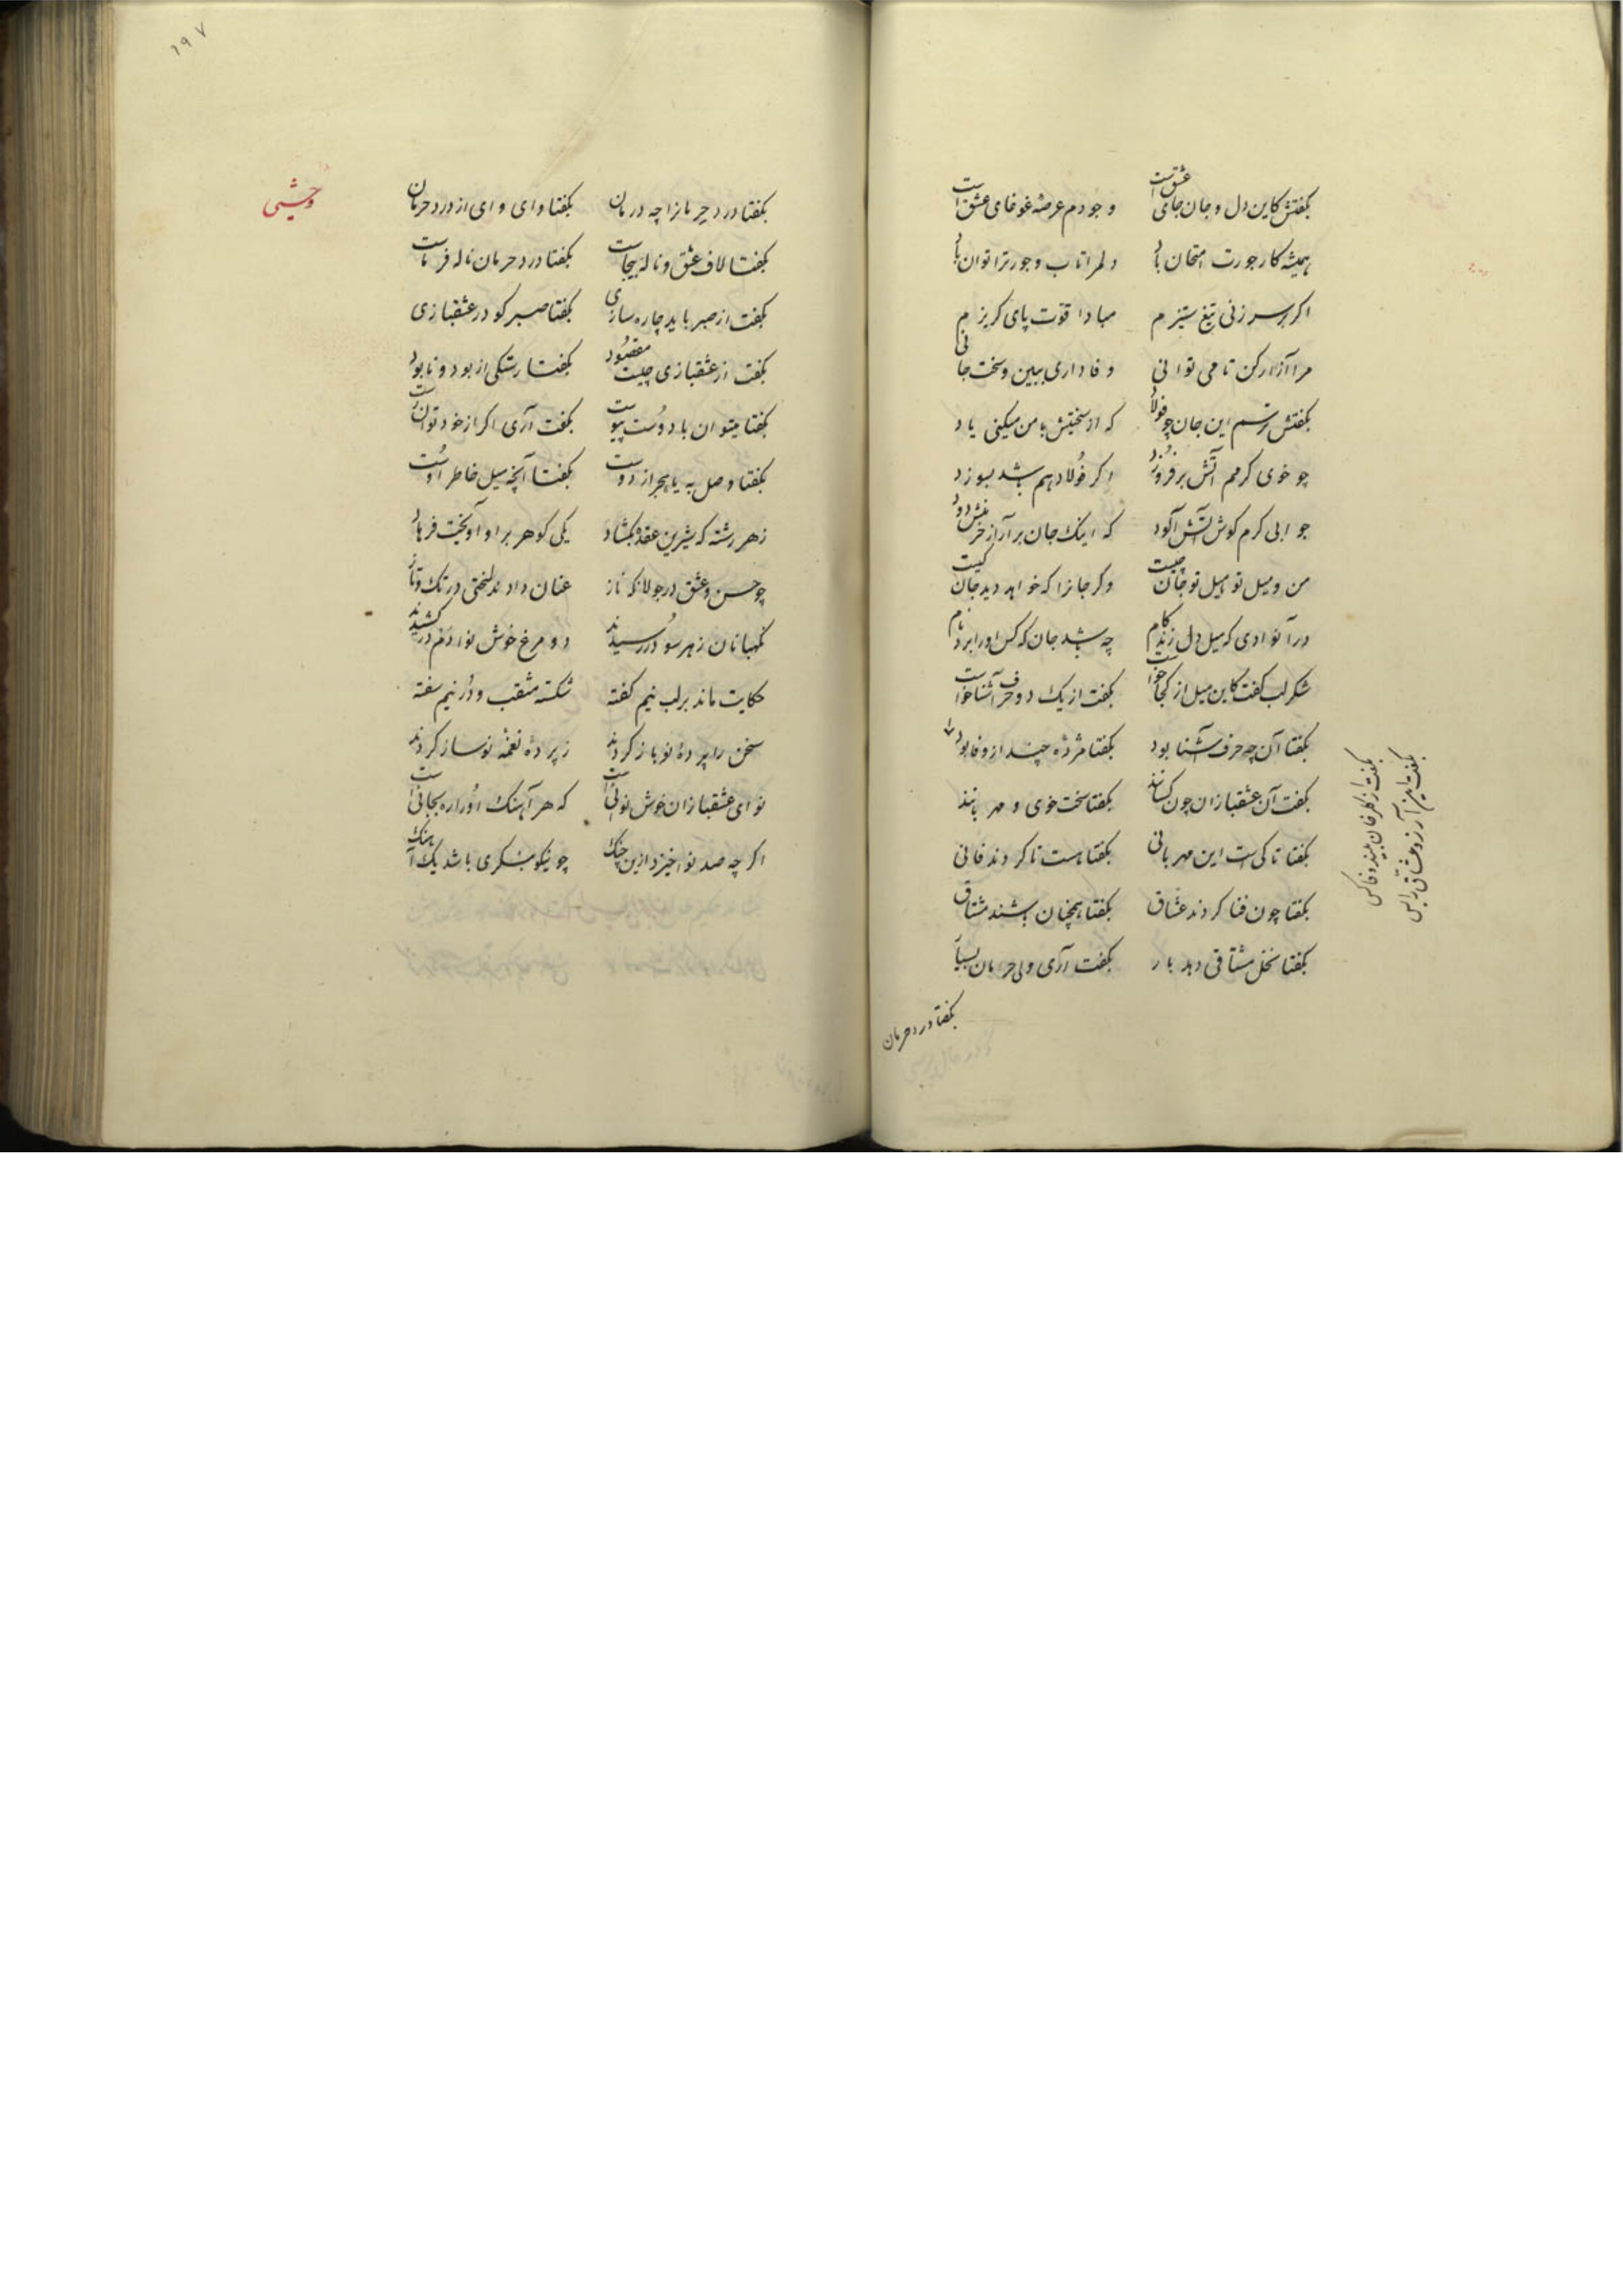 بگفتش کاین دل و جان جای عشق است وجودم عرصه غوغای عشق است
همیشه کار جورت امتحان باد دلم را تاب و جور ترا توان باد
اگر بر سر زنی تیغ ستیزم مبادا قوت پای گریزم
مرا آزار کن تا می توانی وفاداری ببین و سخت جانی
بگفتش ترسم این جان چو فولاد که از سختیش با من میکنی یاد
چو خوی گرمم آتش بر فروزد اگر فولاد هم باشد بسوزد
جوابی گرم گوش آتش آلود که اینک جان برآر از خرمنش دود
من و میل تو میل تو جان چیست وگر جانرا که خواهد دید جان کیست
در آنوادی که میل دل زند گام چه باشد جان که کس او را برد نام
شکر لب گفت کاین میل از کجا خواست بگفت از یک دو حرف آشنا خواست
بگفتا آن چه حرف آشنا بود بگفتا مژده چند از وفا بود
بگفت آن عشقبازان چون کسانند بگفتا سخت خوی و مهربانند
بگفتا تا کی است این مهربانی بگفتا هست تا گردند فانی
بگفتا چون فنا گردند عشاق بگفتا همچنان باشند مشتاق
بگفتا نخل مشتاقی دهد بار بگفت آری ولی حرمان بسیار
بگفتا درد حرمان
بگفت از گلرخان بیند وفا کس
بگفت این آرزو عشاق را بس
۱۹۷
وحشی
بگفتا درد حرمانرا چه درمان بگفتا وای وای از درد حرمان
بگفتا لاف عشق و ناله بیجاست بگفتا درد حرمان ناله فرماست
بگفت از صبر باید چاره سازی بگفتا صبر کو در عشقبازی
بگفت از عشقبازی چیست مقصود بگفتا رستگی از بود و نابود
بگفتا میتوان با دوست پیوست بگفت آری اگر از خود توان رست
بگفتا وصل به یا هجر از دوست بگفتا آنچه میل خاطر اوست
زهر رشته که شیرین عقده بگشاد یکی گوهر بر او آویخت فرهاد
چو حسن و عشق در جولانگه ناز عنان دادند لختی در تک و تاز
نگهبانان زهر سو در رسیدند دو مرغ خوش نوا دم در کشیدند
حکایت ماند بر لب نیم گفته شکسته مثقب و در نیم سفته
سخن را پرده نو باز کردند ز پرده نغمه نو ساز کردند
نوای عشقبازان خوش نوائیست که هر آهنگ او را ره بجائیست
اگر چه صد نوا خیزد ازین چنگ چو نیکو بنگری باشد یک آهنگ